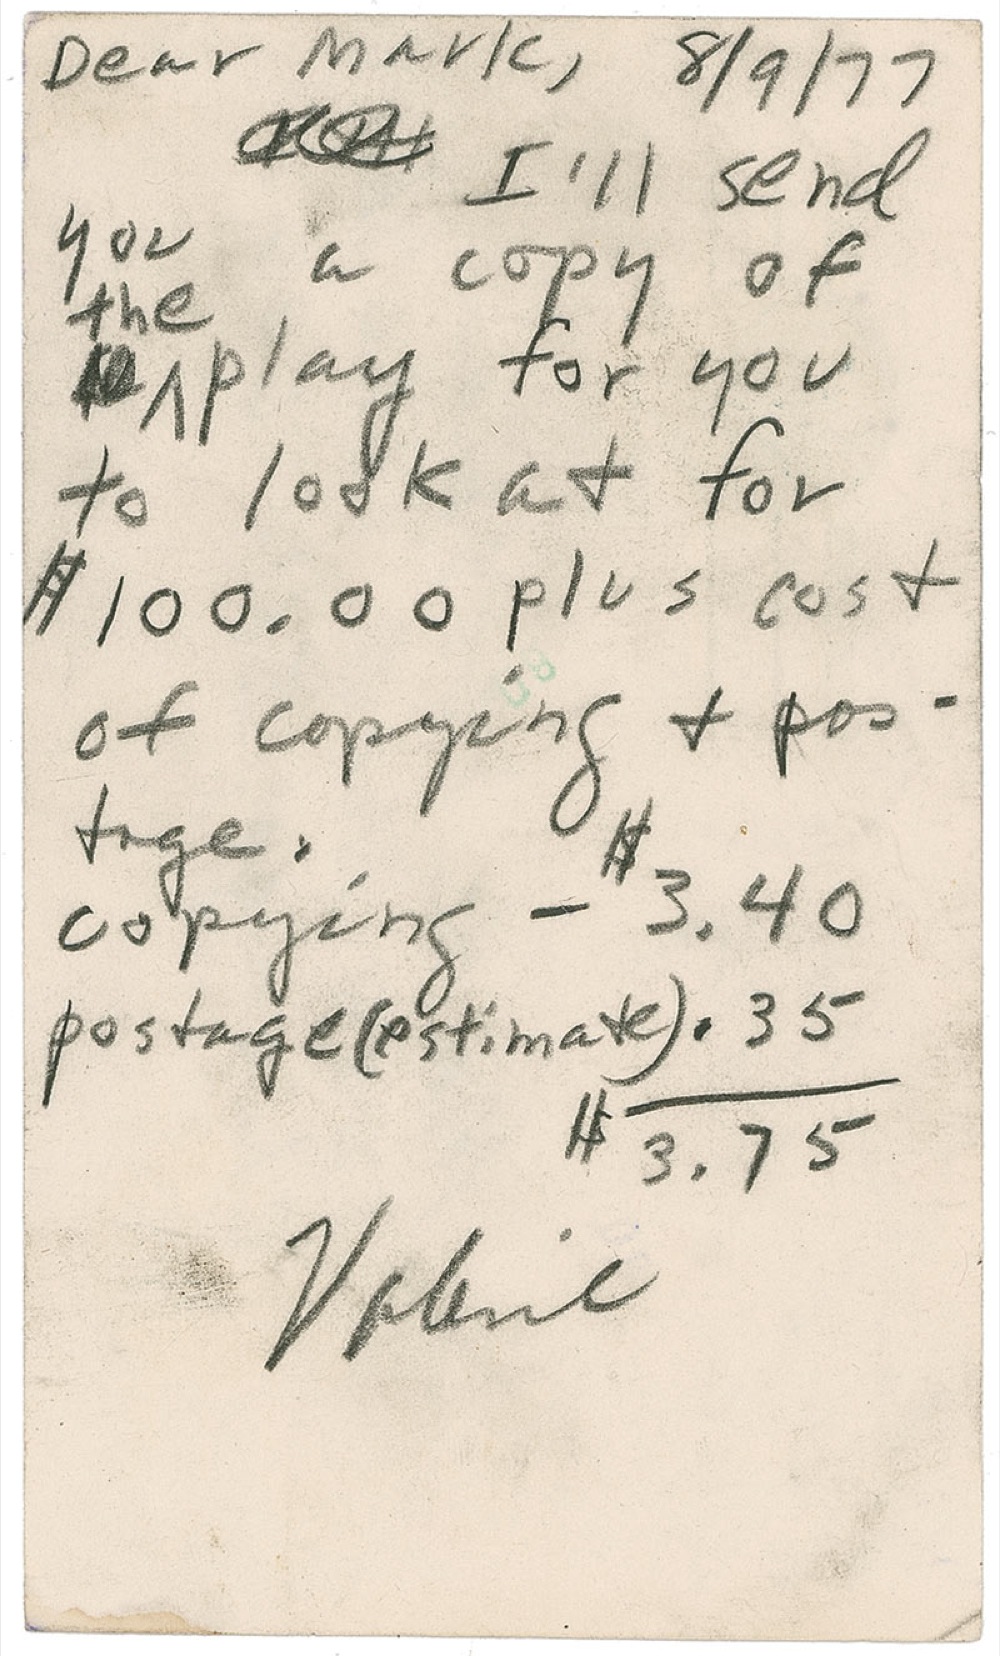 Dear Mark, 8/9/77
I'll send
you a copy of
the
play for you
to look at for
$100.00 plus cost
of copying + pos-
tage.
copying - $3.40
postage (estimate) .35
$3.75
Valerie